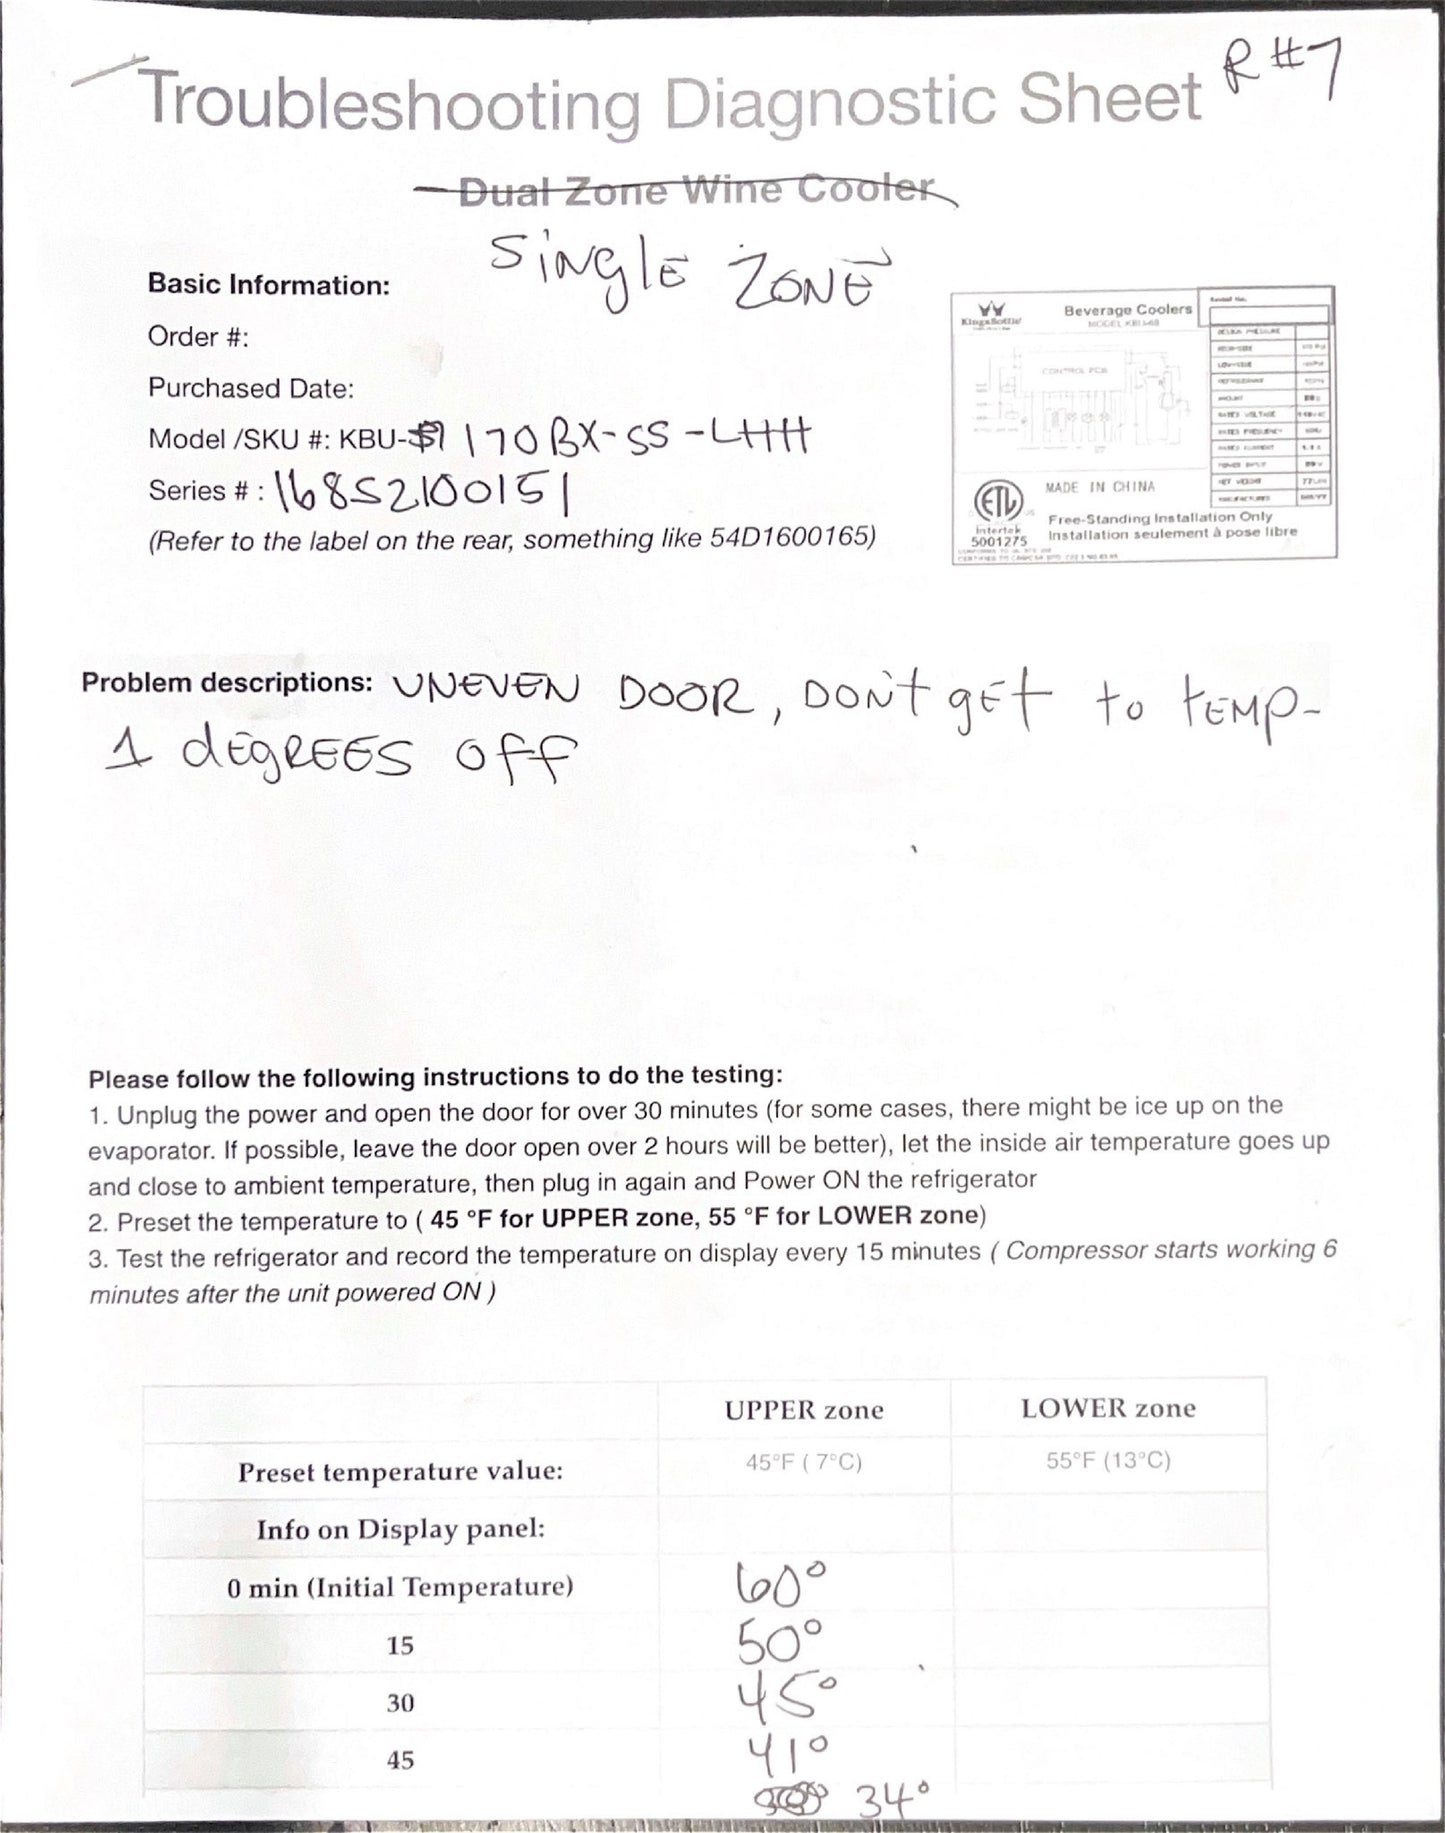 R#7
Troubleshooting Diagnostic Sheet
Dual Zone Wine Cooler
SINGLE ZONE
Basic Information:
Order #:
Purchased Date:
Model /SKU #: KBU-170BX-SS-LHH
Series # : 16852100151
(Refer to the label on the rear, something like 54D1600165)
KingsBottle
Beverage Coolers
CONTROL PCB
MADE IN CHINA
ETL
Intertek
5001275
Free-Standing Installation Only
Installation seulement à pose libre
Problem descriptions: UNEVEN DOOR, DON't gEt to tEMP-
1 dEgREES Off
Please follow the following instructions to do the testing:
1. Unplug the power and open the door for over 30 minutes (for some cases, there might be ice up on the
evaporator. If possible, leave the door open over 2 hours will be better), let the inside air temperature goes up
and close to ambient temperature, then plug in again and Power ON the refrigerator
2. Preset the temperature to ( 45 °F for UPPER zone, 55 °F for LOWER zone)
3. Test the refrigerator and record the temperature on display every 15 minutes ( Compressor starts working 6
minutes after the unit powered ON )
UPPER zone LOWER zone
Preset temperature value: 45°F ( 7°C) 55°F (13°C)
Info on Display panel:
0 min (Initial Temperature) 60°
15 50°
30 45°
45 41°
34°